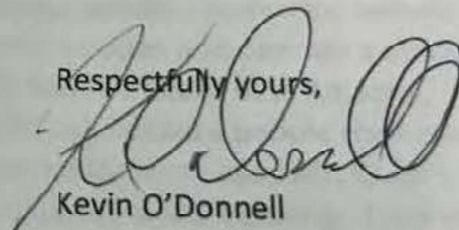 Respectfully yours,
Kevin O'Donnell